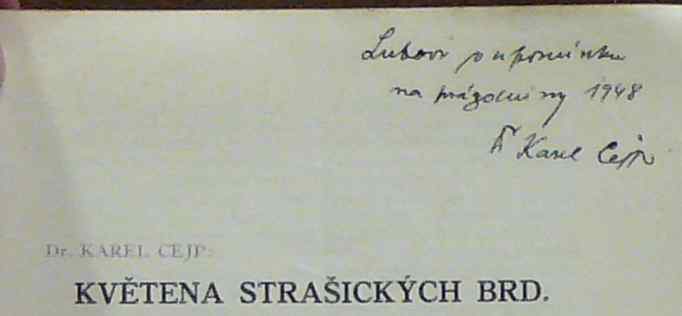 Lubovi upomínku
na prázdniny 1948
Karel Cejp
Dr. KAREL CEJP:
KVĚTENA STRAŠICKÝCH BRD.